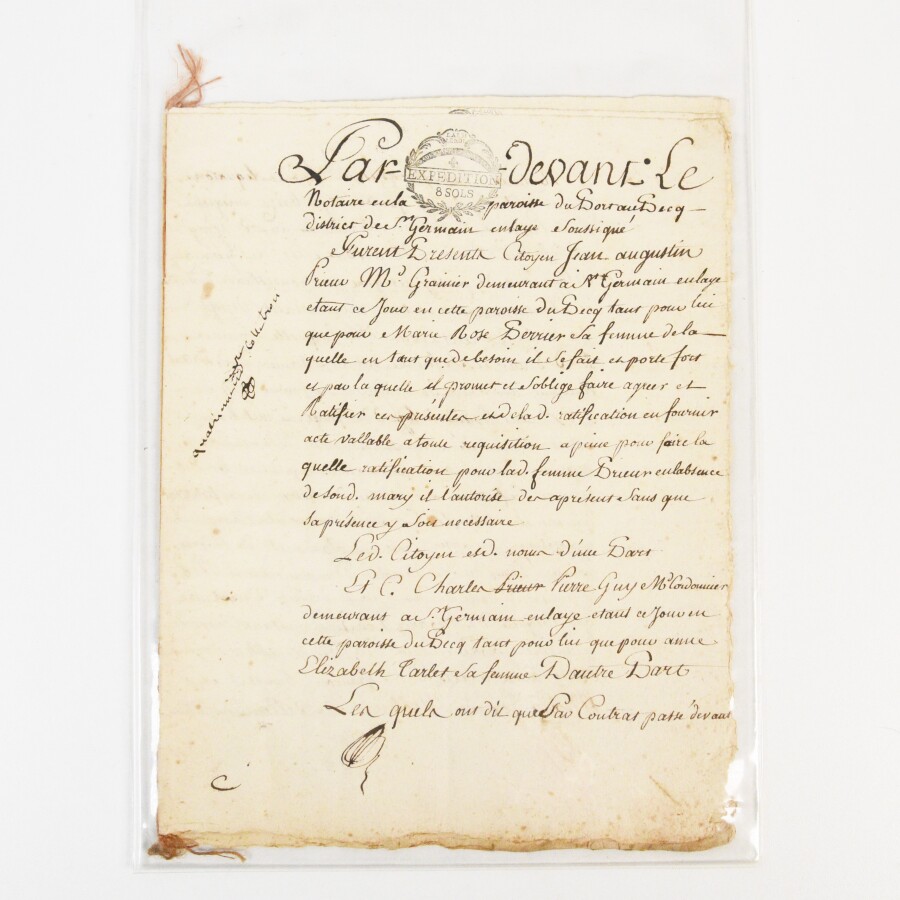 Par-devant Le
4
EXPEDITION
8 SOLS
Notaire en la paroisse du Port au Pecq
district de St Germain en laye Soussigné
Furent Presents Citoyen Jean augustin
Prieur Md Grainier demeurant a St Germain en laye
etant ce Jour en cette paroisse du Pecq tant pour lui
que pour Marie Rose Perrier sa femme de la
quelle en tant que de besoin il se fait et porte fort
et par la quelle il promet et s'oblige faire agréer et
Ratifier ces présentes et de lad. ratification en fournir
acte vallable a toute requisition a peine pour faire la
quelle ratification pour lad. femme Prieur en l'absence
de sond. mary il l'autorise des apresent sans que
sa présence y soit necessaire
Led. Citoyen esd. noms d'une Part
Et C. Charles Prieur Pierre Guy Me Cordonnier
demeurant a St Germain en laye etant ce Jour en
cette paroisse du Pecq tant pour lui que pour anne
Elizabeth Tarlet sa femme D'autre Part
Les quels ont dit que Par Contrat passé devant